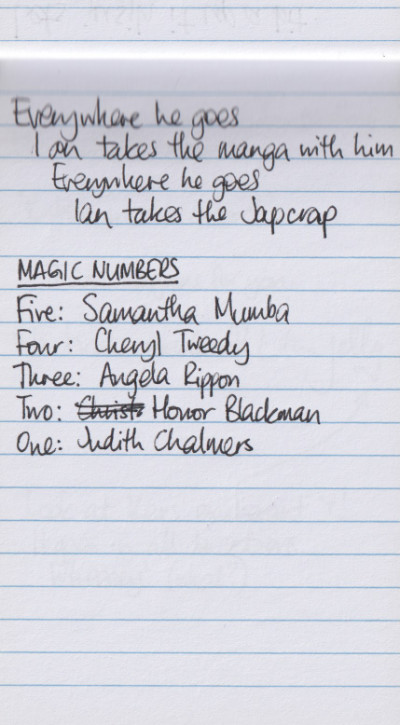 Everywhere he goes
Ian takes the manga with him
Everywhere he goes
Ian takes the Japcrap
MAGIC NUMBERS
Five: Samantha Mumba
Four: Cheryl Tweedy
Three: Angela Rippon
Two: Honor Blackman
One: Judith Chalmers